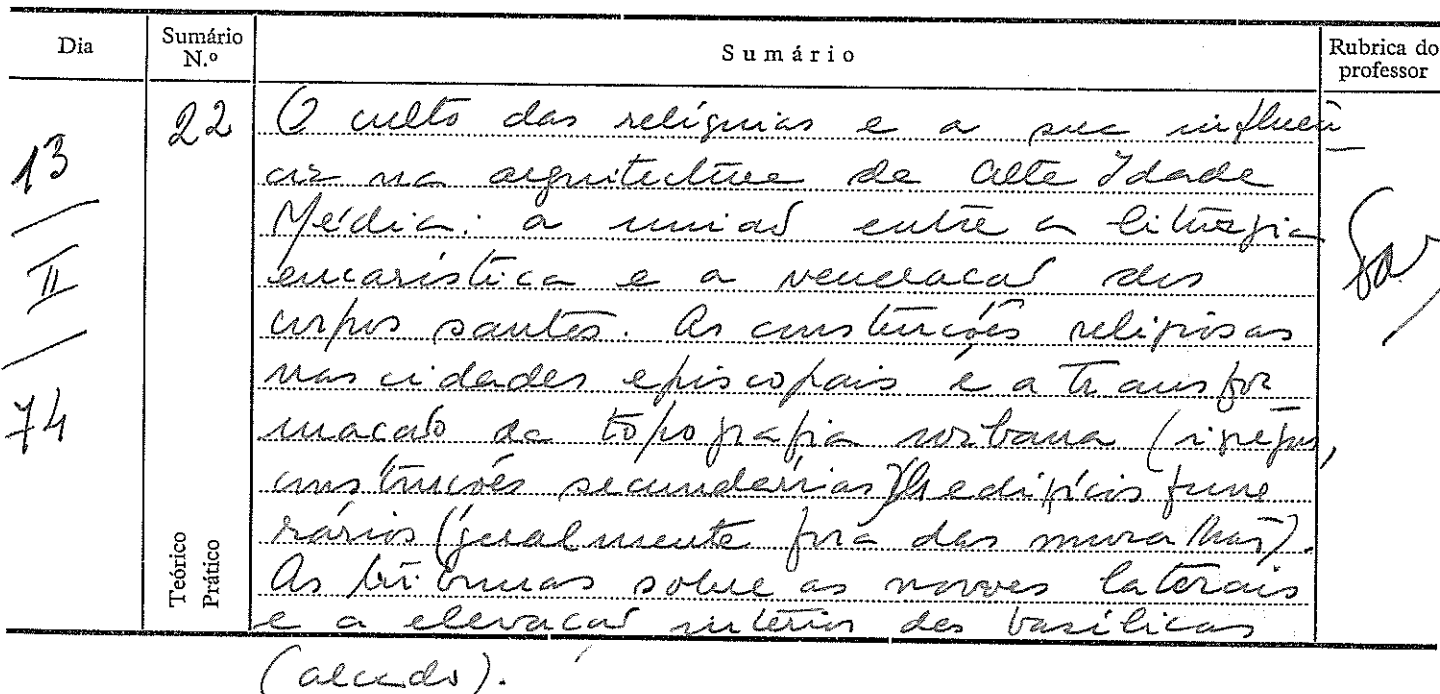 Dia
Sumário N.º
Sumário
Rubrica do professor
13
II
74
22
O culto das relíquias e a sua influên
cia na arquitectura da Alta Idade
Média: a união entre a liturgia
eucarística e a veneração dos
corpos santos. As construções religiosas
nas cidades episcopais e a transfor
mação da topografia urbana (igrejas,
construções secundárias). Os edifícios fune
rários (geralmente fora das muralhas).
As tribunas sobre as naves laterais
e a elevação interior das basílicas
(alçado).
Teórico
Prático